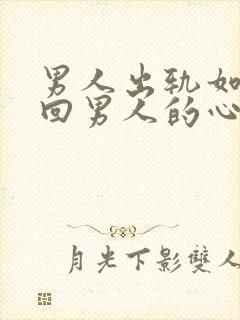 男人出轨如
回男人的心
月光下影雙人